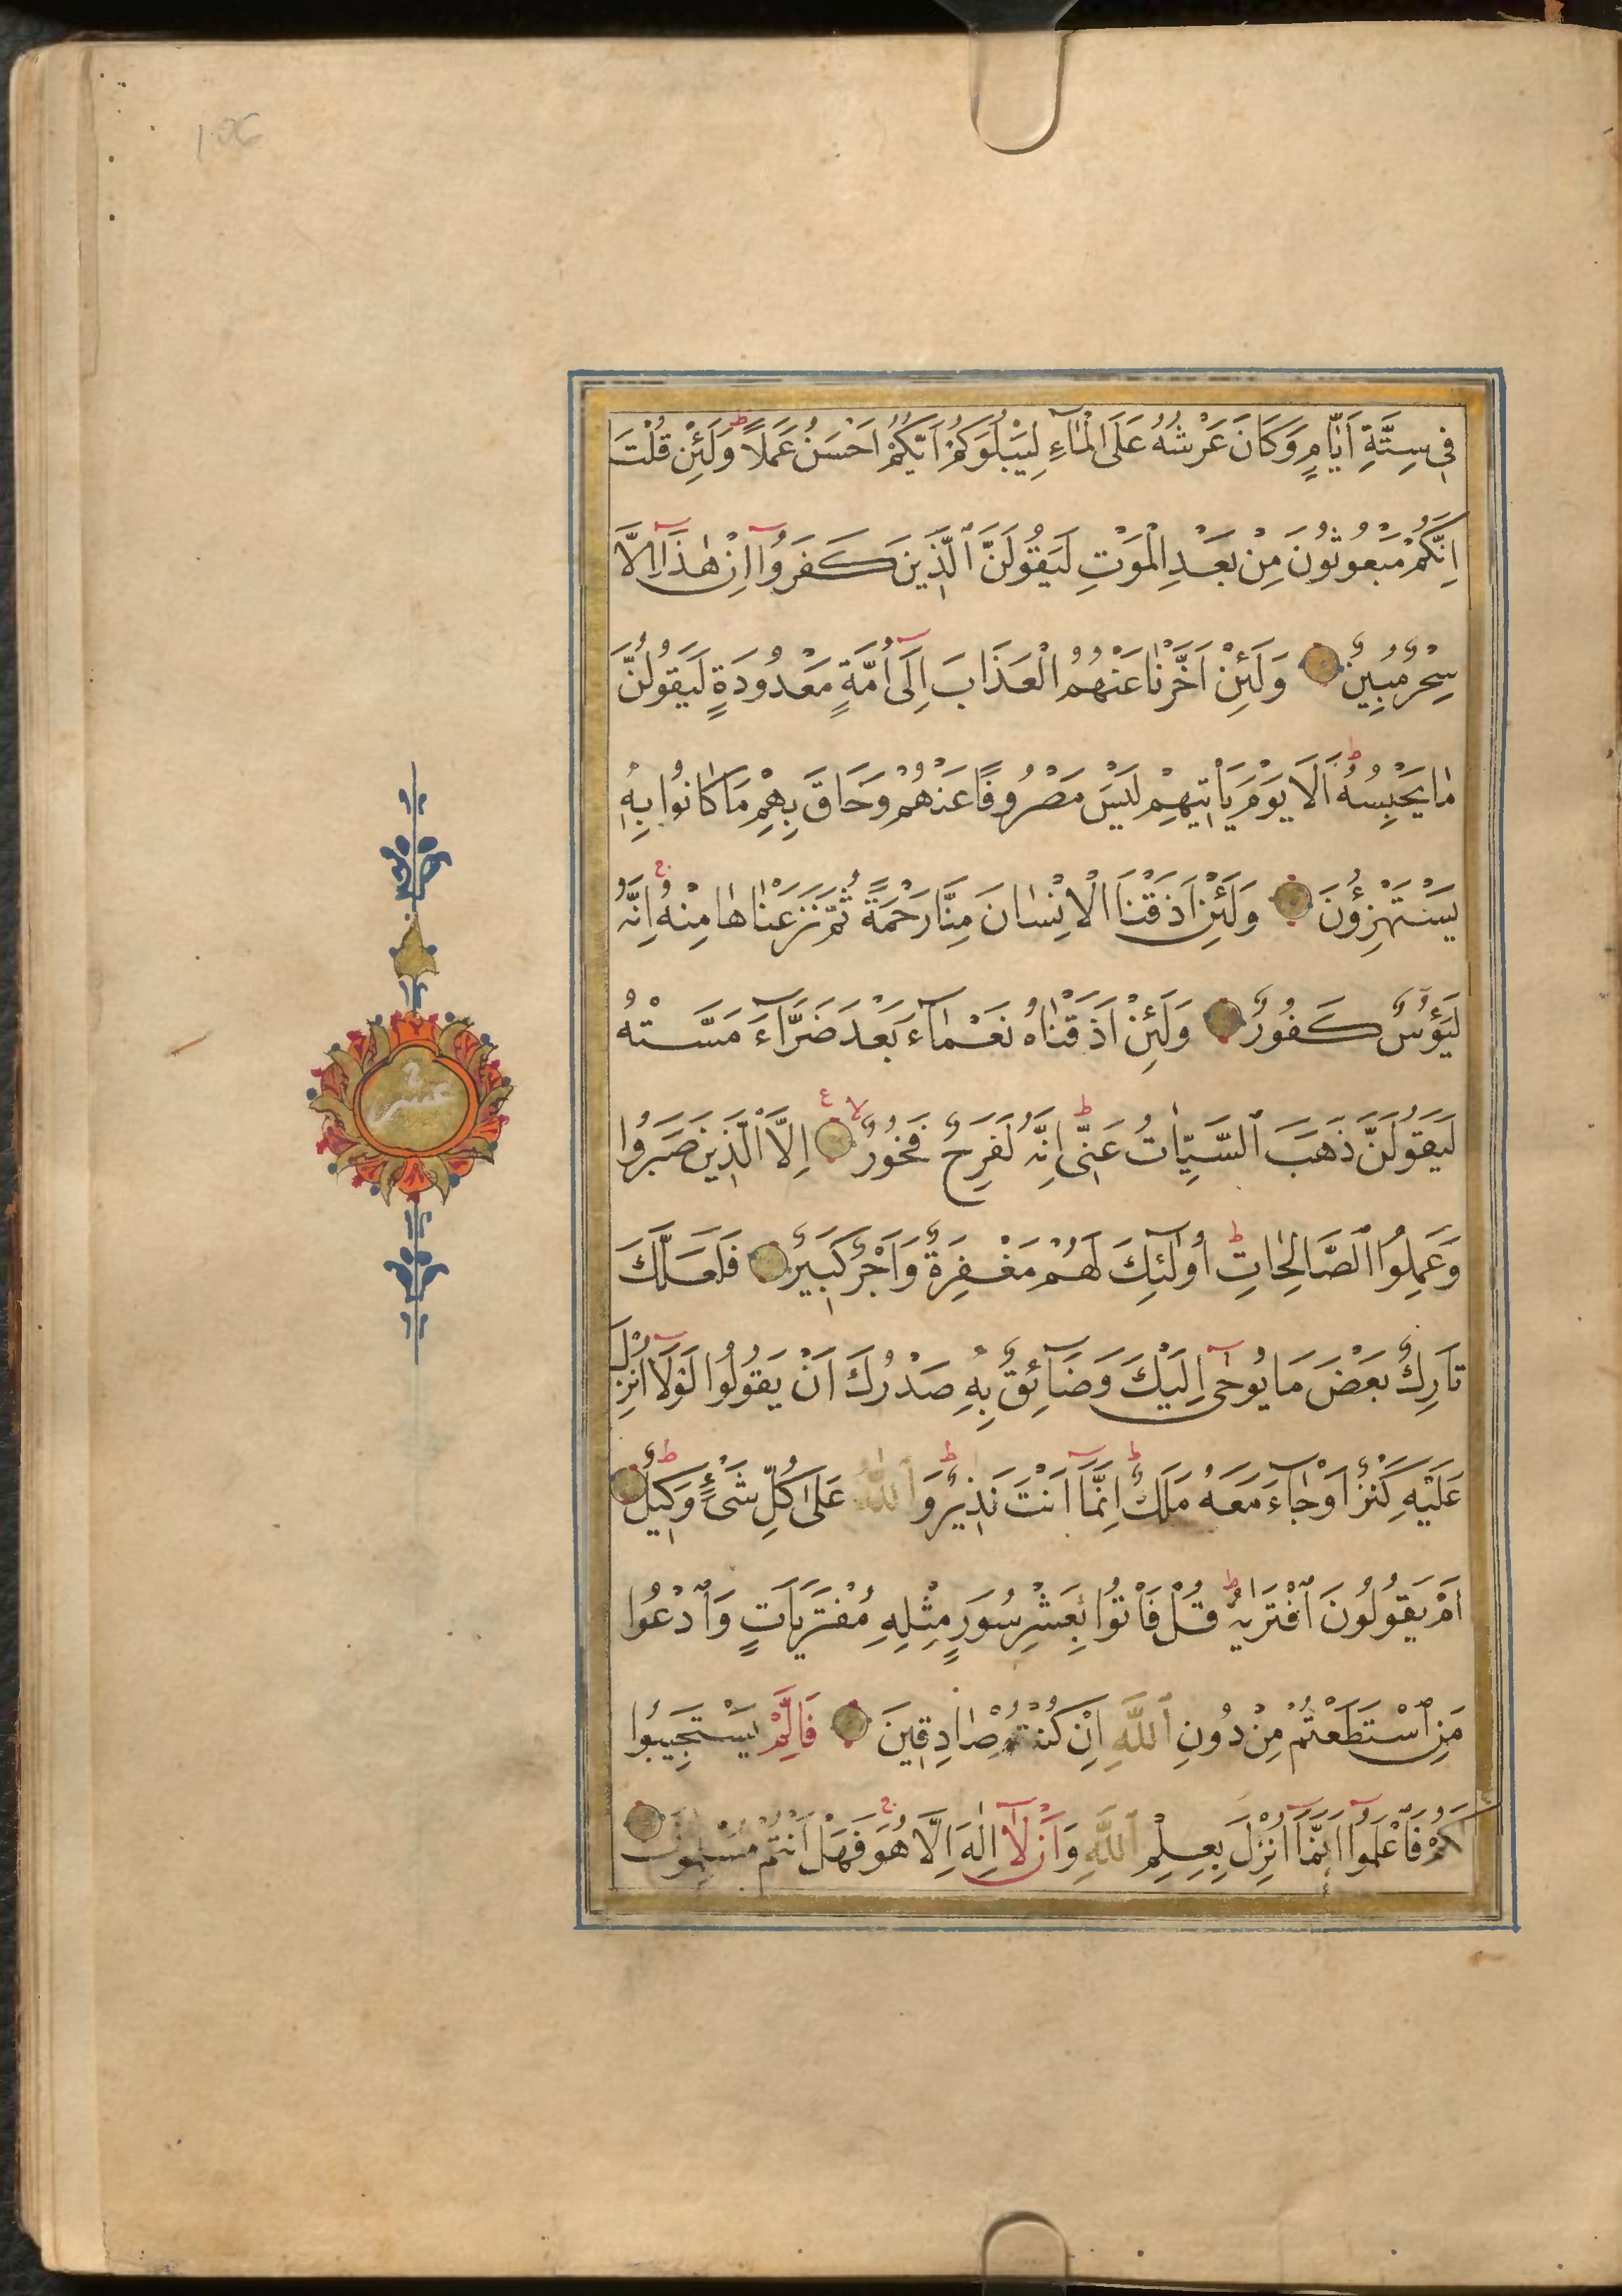 فِي سِتَّةِ اَيَّامٍ وَكَانَ عَرْشُهُ عَلَى الْمَآءِ لِيَبْلُوَكُمْ اَيُّكُمْ اَحْسَنُ عَمَلًا ط وَلَئِنْ قُلْتَ
اِنَّكُمْ مَبْعُوثُونَ مِنْ بَعْدِ الْمَوْتِ لَيَقُولَنَّ ٱلَّذِينَ كَفَرُوٓا اِنْ هٰذَآ اِلَّا
سِحْرٌ مُبِينٌ وَلَئِنْ اَخَّرْنَا عَنْهُمُ الْعَذَابَ اِلٰٓى اُمَّةٍ مَعْدُودَةٍ لَيَقُولُنَّ
مَا يَحْبِسُهُ ط اَلَا يَوْمَ يَاْتِيهِمْ لَيْسَ مَصْرُوفًا عَنْهُمْ وَحَاقَ بِهِمْ مَا كَانُوا بِهِ
يَسْتَهْزِؤُنَ وَلَئِنْ اَذَقْنَا الْاِنْسَانَ مِنَّا رَحْمَةً ثُمَّ نَزَعْنَاهَا مِنْهُ ج اِنَّهُ
لَيَؤُسٌ كَفُورٌ وَلَئِنْ اَذَقْنَاهُ نَعْمَآءَ بَعْدَ ضَرَّآءَ مَسَّتْهُ
لَيَقُولَنَّ ذَهَبَ ٱلسَّيِّاٰتُ عَنِّى ط اِنَّهُ لَفَرِحٌ فَخُورٌ لا ع اِلَّا ٱلَّذِينَ صَبَرُوا
وَعَمِلُوا ٱلصَّالِحَاتِ ط اُولٰٓئِكَ لَهُمْ مَغْفِرَةٌ وَاَجْرٌ كَبِيرٌ فَلَعَلَّكَ
تَارِكٌ بَعْضَ مَا يُوحٰٓى اِلَيْكَ وَضَآئِقٌ بِهِ صَدْرُكَ اَنْ يَقُولُوا لَوْلَآ اُنْزِلَ
عَلَيْهِ كَنْزٌ اَوْ جَآءَ مَعَهُ مَلَكٌ ط اِنَّمَآ اَنْتَ نَذِيرٌ ط وَٱللّٰهُ عَلٰى كُلِّ شَىْءٍ وَكِيلٌ ط
اَمْ يَقُولُونَ ٱفْتَرٰيهُ ط قُلْ فَاْتُوا بِعَشْرِ سُوَرٍ مِثْلِهِ مُفْتَرَيَاتٍ وَٱدْعُوا
مَنِ ٱسْتَطَعْتُمْ مِنْ دُونِ ٱللَّهِ اِنْ كُنْتُمْ صَادِقِينَ فَاِلَّمْ يَسْتَجِيبُوا
لَكُمْ فَٱعْلَمُوٓا اَنَّمَآ اُنْزِلَ بِعِلْمِ ٱللَّهِ وَاَنْ لَآ اِلٰهَ اِلَّا هُوَ ج فَهَلْ اَنْتُمْ مُسْلِمُونَ
عشر
106